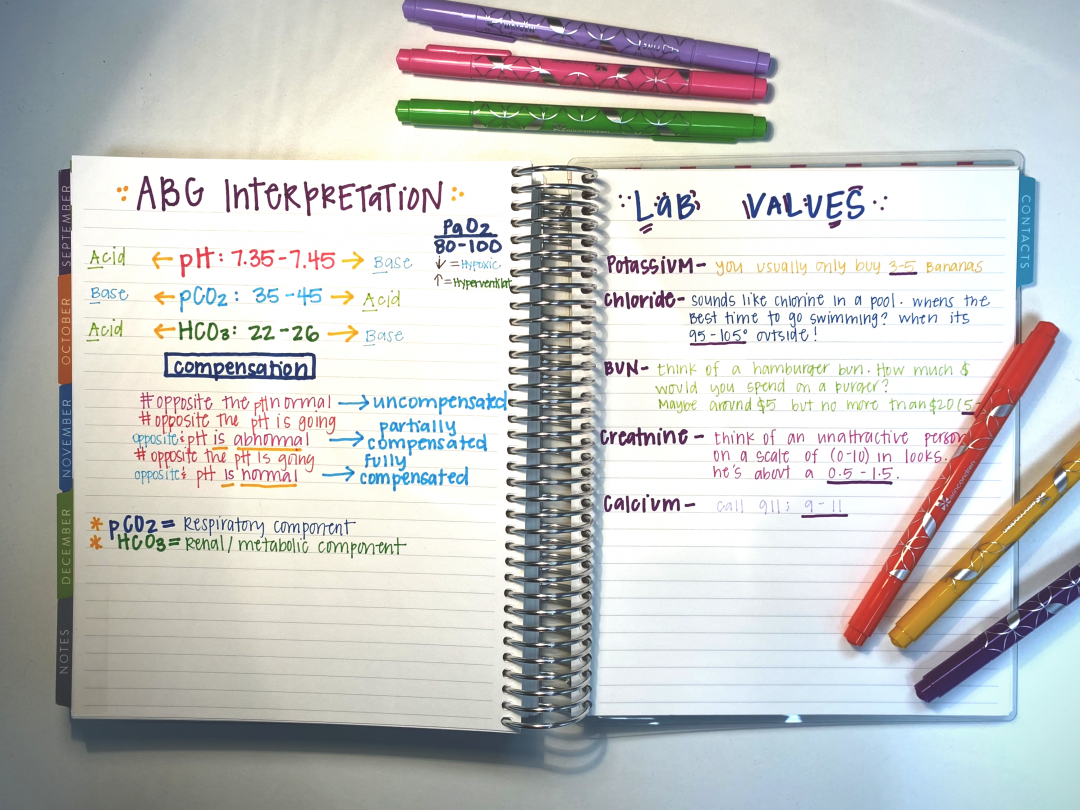 ABG Interpretation
PaO2
80-100
↓ = Hypoxic
↑ = Hyperventilat
Acid ← pH: 7.35-7.45 → Base
Base ← pCO2: 35-45 → Acid
Acid ← HCO3: 22-26 → Base
compensation
# opposite the pH normal → uncompensated
# opposite the pH is going
opposite & pH is abnormal → partially compensated
# opposite the pH is going
opposite & pH is normal → fully compensated
* pCO2 = Respiratory component
* HCO3 = Renal/metabolic component
LAB VALUES
Potassium- you usually only buy 3-5 Bananas
Chloride- sounds like chlorine in a pool. whens the
Best time to go swimming? when its
95-105° outside!
BUN- think of a hamburger bun. How much $
would you spend on a burger?
Maybe around $5 but no more than $20 (5-
Creatnine- think of an unattractive person
on a scale of (0-10) in looks.
he's about a 0.5-1.5.
Calcium- call 911: 9-11
SEPTEMBER
OCTOBER
NOVEMBER
DECEMBER
NOTES
CONTACTS